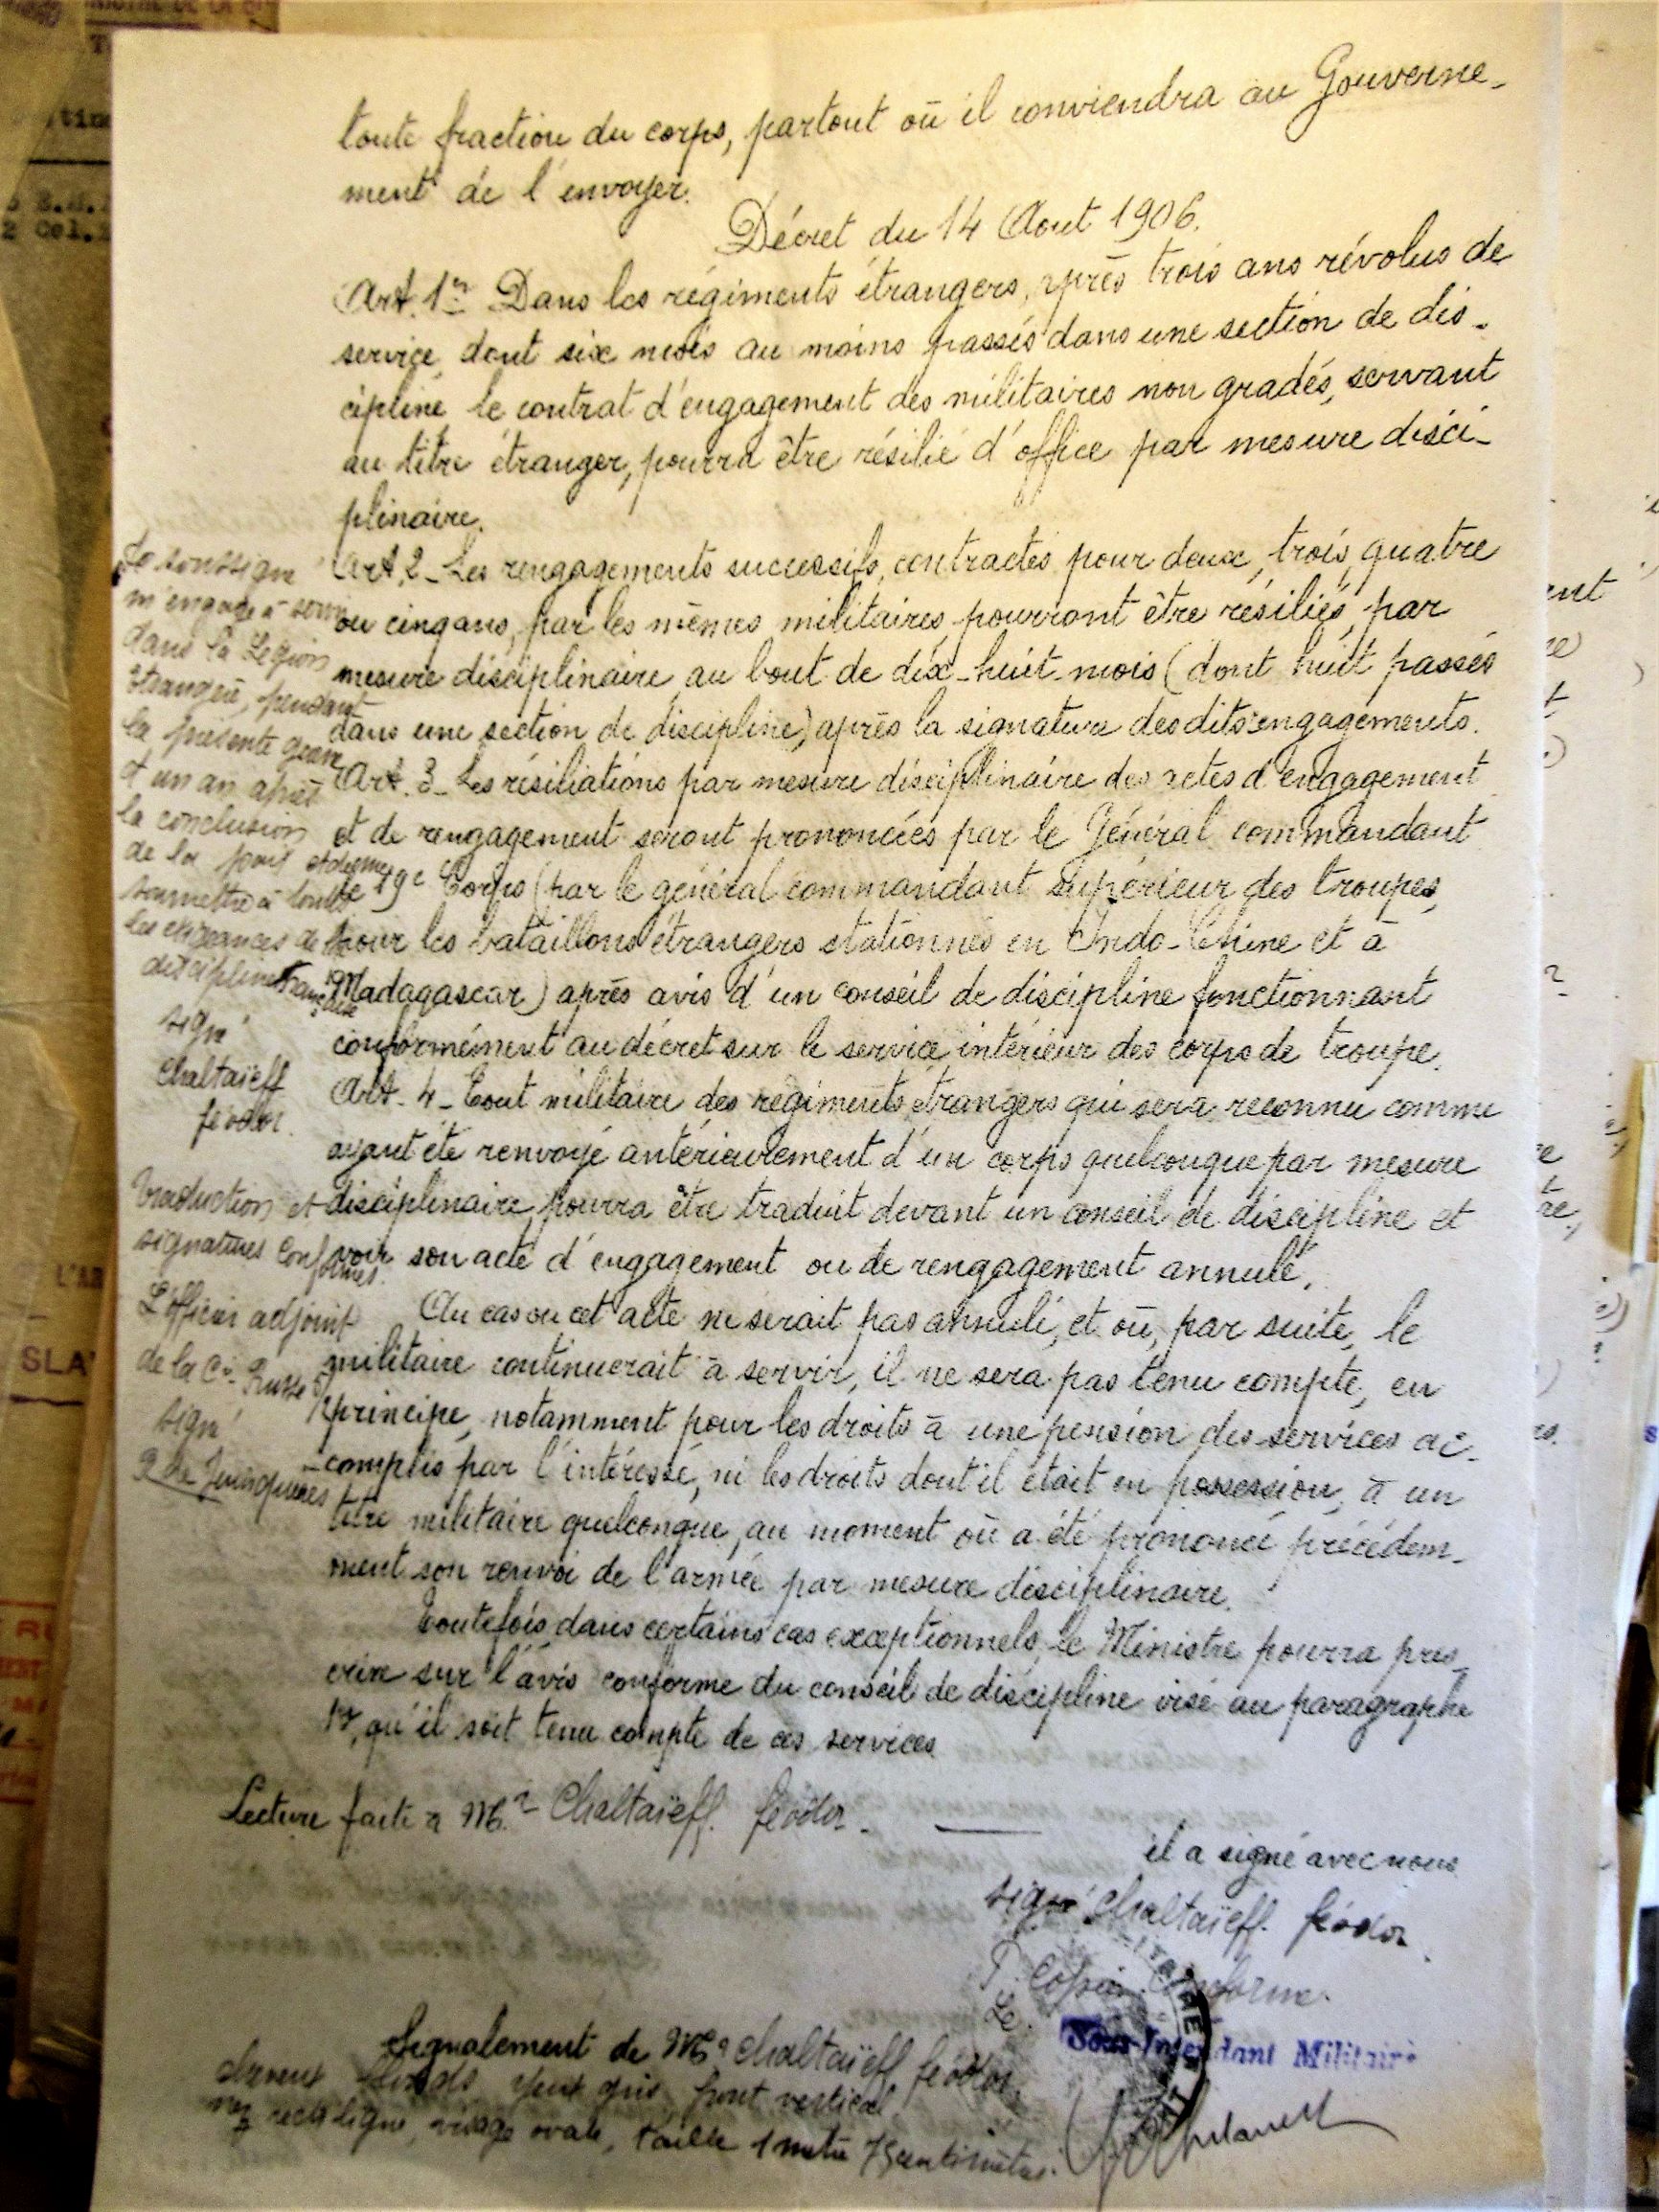 toute fraction du corps, partout où il conviendra au Gouverne-
ment de l'envoyer.
Décret du 14 Aout 1906.
Art. 1er Dans les régiments étrangers, après trois ans révolus de
service, dont six mois au moins passés dans une section de dis-
cipline le contrat d'engagement des militaires non gradés, servant
au titre étranger, pourra être résilié d'office par mesure disci-
plinaire.
Art. 2 - Les rengagements successifs, contractés pour deux, trois, quatre
ou cinq ans, par les mêmes militaires, pourront être résiliés, par
mesure disciplinaire au bout de dix-huit mois (dont huit passés
dans une section de discipline) après la signature desdits engagements.
Art. 3 - Les résiliations par mesure disciplinaire des actes d'engagement
et de rengagement seront prononcées par le Général commandant
le 19e Corps (par le général commandant supérieur des troupes,
pour les bataillons étrangers stationnés en Indo-Chine et à
Madagascar) après avis d'un conseil de discipline fonctionnant
conformément au décret sur le service intérieur des corps de troupe.
Art. 4 - Tout militaire des régiments étrangers qui sera reconnu comme
ayant été renvoyé antérieurement d'un corps quelconque par mesure
disciplinaire, pourra être traduit devant un conseil de discipline et
voir son acte d'engagement ou de rengagement annulé.
Au cas ou cet acte ne serait pas annulé, et où, par suite, le
militaire continuerait à servir, il ne sera pas tenu compte, en
principe, notamment pour les droits à une pension des services ac-
complis par l'intéressé, ni les droits dont il était en possession, à un
titre militaire quelconque, au moment où a été prononcé précédem-
ment son renvoi de l'armée par mesure disciplinaire.
Toutefois dans certains cas exceptionnels, le Ministre pourra pres-
crire sur l'avis conforme du conseil de discipline visé au paragraphe
1er, qu'il soit tenu compte de ces services
Je soussigné
m'engage à servir
dans la Légion
étrangère, pendant
la présente guerre
et un an après
la conclusion
de la paix et de me
soumettre à toutes
les exigeances de la
discipline française
signé
Chaltaïeff
féodor.
Traduction et
signatures conformes.
L'officier adjoint
de la Cie Russe
signé
Lecture faite à Mr Chaltaïeff. féodor.
il a signé avec nous
signé Chaltaïeff. féodor
P. Copie Conforme.
Le
Sous-Intendant Militaire
Signalement de Mr Chaltaïeff féodor
cheveux blonds yeux gris, front vertical,
nez rectiligne, visage ovale, taille 1 mètre centimètres.